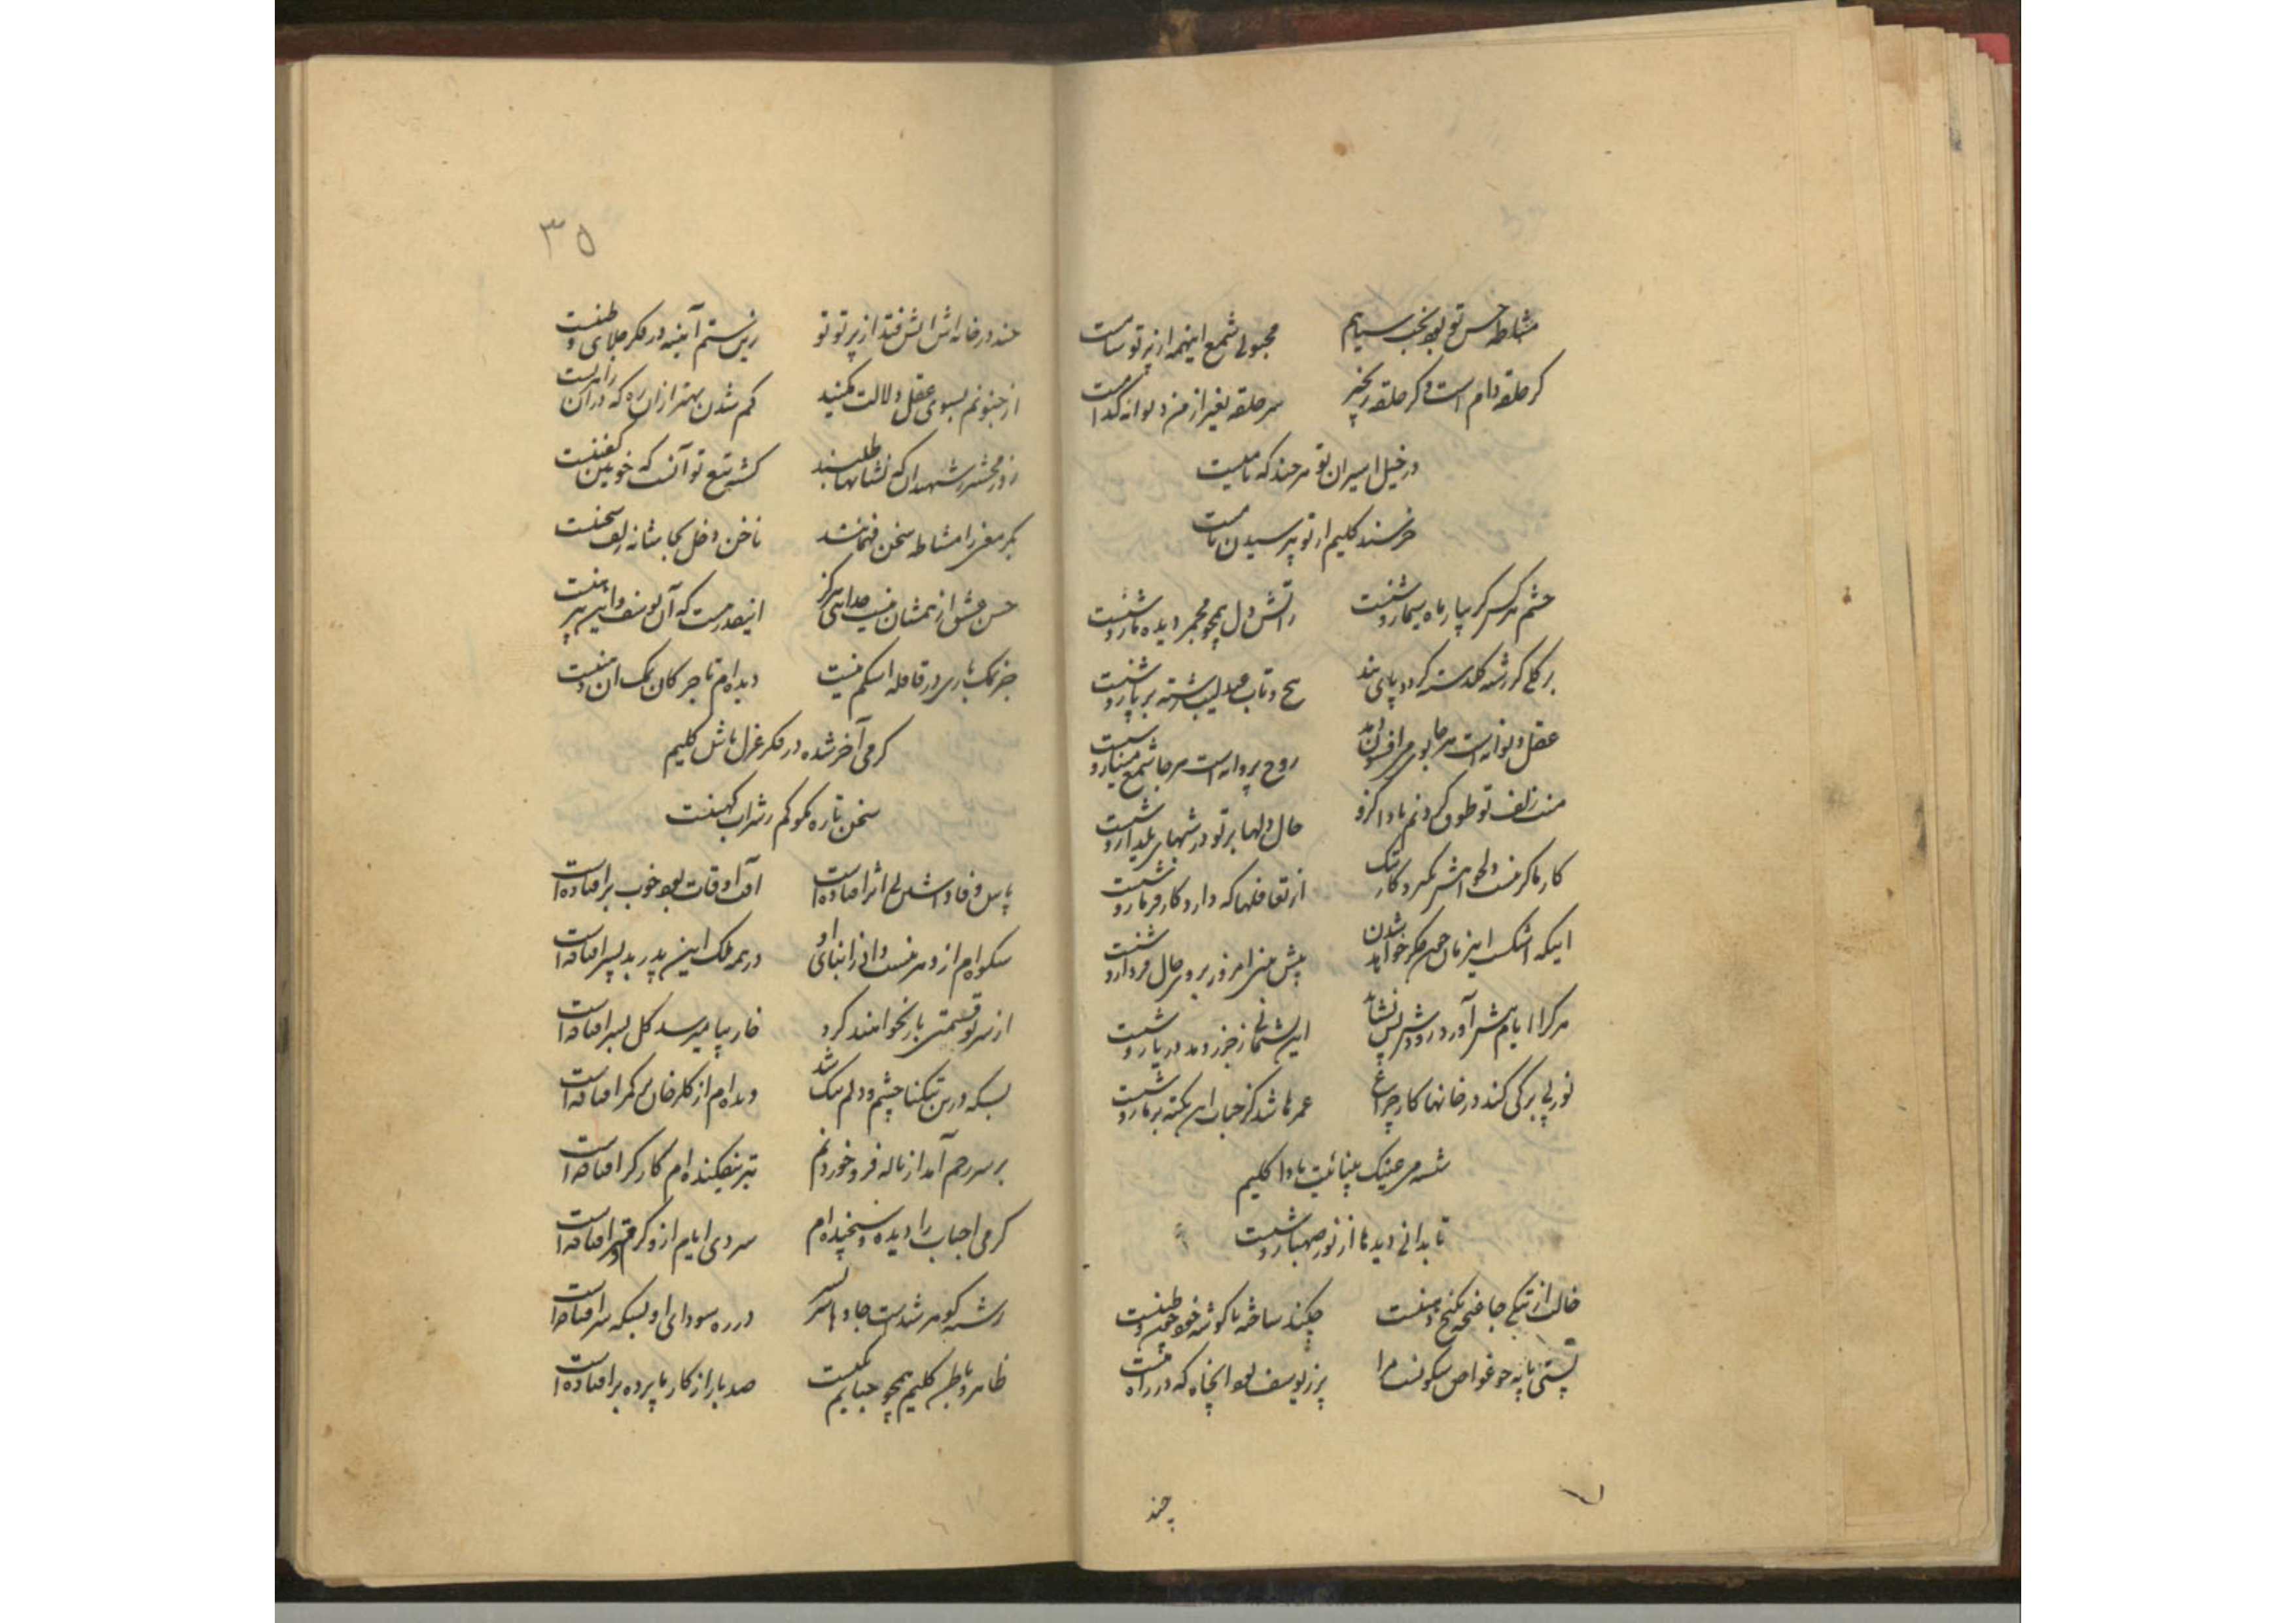 مشاطه حسن تو بود بخت سیاهم    محبوبی شمع اینهمه از پرتو شامست
کر حلقه دام است و کر حلقه زنجیر    سر حلقه بغیر از من دیوانه کدامست
در خیل اسیران تو هر چند که نامیست
خرسند کلیم از تو بپرسیدن نامست
چشم هر کس کر بپا ماه سیما روشنست    ز آتش دل همچو مجمر دیده ما روشنست
بر کلی کز رشته کلدسته کردد پای بند    پیچ و تاب عندلیب رشته بر پا روشنست
عقل دیوانه است هر جا بوی می افسون دمد    روح پروانه است هر جا شمع مینا روشنست
منت زلف تو طوق کردنم بادا کزو    حال دلها بر تو در شبهای یلدا روشنست
کار ما کرمست دلخواهش نمیرد کار تنک    از تغافلها که دارد کارفرما روشنست
ایکه اشکست این زمان جیحون دکر خواهد شدن    پیش من امروز بر وی حال فردا روشنست
هر کرا ایام پیش آورد زودش پس نشاند    این سخن از جزر و مد دریا روشنست
نور بی برکی کند در خانها کار چراغ    عمرها شد کز حباب این نکته بر ما روشنست
شیشه می عینک بینائیت بادا کلیم
تا بدانی دیدها از نور صهبا روشنست
خالت از تنکی جا ضحه کنج دهنست    چکند ساخته با کوشه خود چون وطنست
پستی پایه چو غواص نکو نست مرا    پر ز یوسف بود آن چاه که در راه منست
چند
۳۵
چند در خانه اش آتش فتد از پرتو تو    زین ستم آینه در فکر جلای وطنست
از جنونم بسوی عقل دلالت مکنید    کم شدن بهتر از آن راه که در آن راهزنست
روز محشر ز شهیدان که نشانها طلبند    کشته تیغ تو آنست که خونین کفنست
بکر معنی را مشاطه سخن فهمانند    ناخن دخل بجا شانه زلف سخنست
حسن و عشق از همشان نیست جدایی هرکز    اینقدر هست که آن یوسف و این پیرهنست
جز نمک باری در قافله اشکم نیست    دیده ام تاجر کان نمک آن دهنست
کرمی آخر شده در فکر غزل باش کلیم
سخن تازه نکو کم ز شراب کهنست
پاس وفا داشتن بی اثر افتاده است    آفت اوقات بود خوب بر افتاده است
شکوه ام از دهر نیست دانم ز ابنای او    در همه ملک این پدر بد پسر افتاده است
از سر نو قسمتی باز نخواهند کرد    خار بپا میرسد کل بسر افتاده است
بسکه درین تنکنا چشم و دلم تنک شد    دیده ام از کلرخان بر کمر افتاده است
بر سر رحم آمد از ناله فرو خوردنم    تیر نیفکنده ام کارکر افتاده است
کرمی احباب را دیده و سنجیده ام    سردی ایام ازو کرمتر افتاده است
رشته کوهر شدست جاده ها سر بسر    در ره سودای او بسکه سر افتاده است
ظاهر و باطن کلیم همچو حبابم یکیست    صد بار از کار ما پرده بر افتاده است